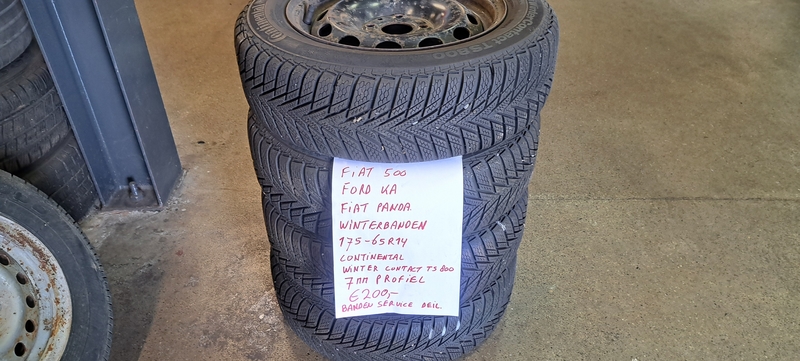 FIAT 500
FORD KA
FIAT PANDA
WINTERBANDEN
175-65R14
CONTINENTAL
WINTER CONTACT TS 800
7mm PROFIEL
€200,-
BANDEN SERVICE DEIL.